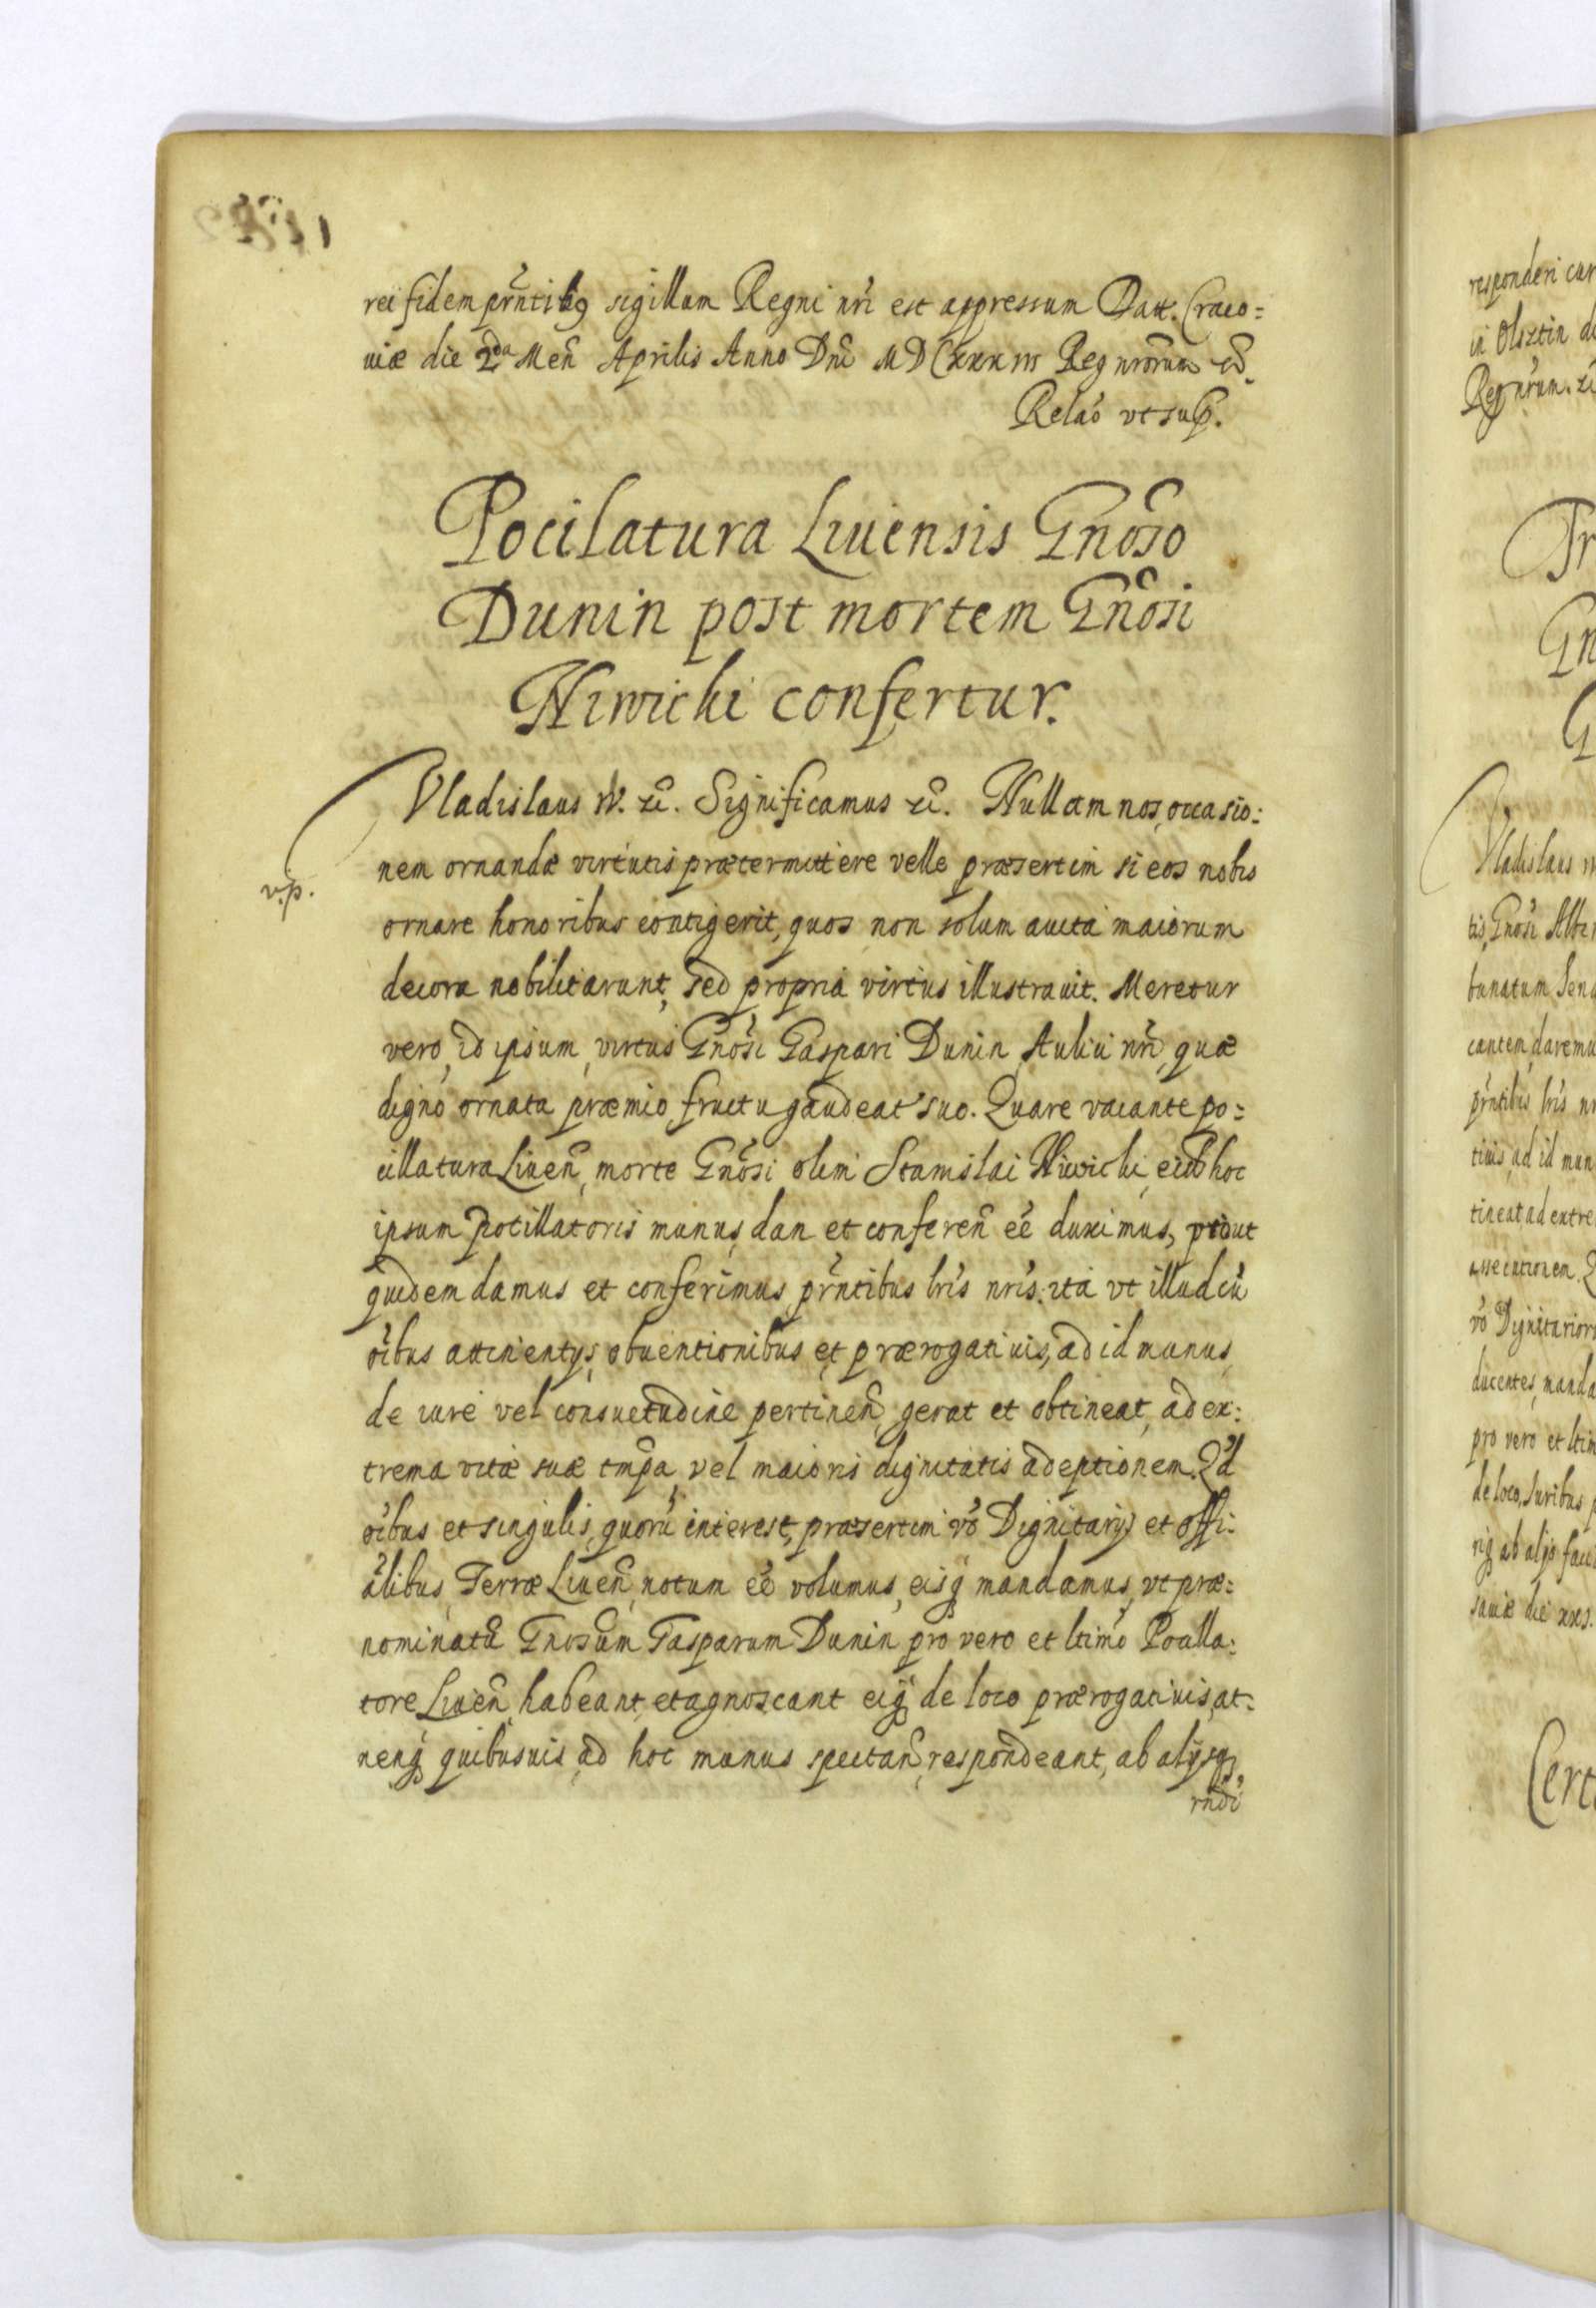 rei fidem prñtibq sigillum Regni nri est appressum Datt. Craco:
uiæ die 2da Men̄ Aprilis Anno Dni MDCxxxiii Reg nrorum etc.
Relaō vt sup.
Pocilatura Liuensis Gnōso
Dunin post mortem Gnōsi
Niwicki confertur.
Vladislaus IV. etc. Significamus etc. Nullam nos, occasio:
nem ornandæ virtutis prætermittere velle præsertim si eos nobis
v.p.
ornare honoribus contigerit, quos non solum aucta maiorum
decora nobilitarunt, sed propria virtus illustrauit. Meretur
vero, id ipsum, virtus Gnōsi Gaspari Dunin, Aulici nri, quæ
digno ornata præmio fructu gaudeat suo. Quare vacante po:
cillatura Liuen̄, morte Gnōsi olim Stanislai Niwicki, eid hoc
ipsum Pocillatoris munus, dan et conferen̄ eē duximus, prout
quidem damus et conferimus prñtibus lris nris. ita vt illud cū
oībus attinentys, obuentionibus et prærogatiuis, ad id munus
de iure vel consuetudine pertinen̄, gerat et obtineat, ad ex:
trema vitæ suæ tmpa, vel maioris dignitatis adeptionem. Qd
oībus et singulis, quorū interest, præsertim vō Dignitarys et offi:
ālibus, Terræ Liuen̄, notum eē volumus, eisq mandamus, vt præ:
nominatū Gnosum Gasparum Dunin pro vero et ltimo Pocilla:
tore Liuen̄, habeant, et agnoscant eiq de loco prærogatiuis, at:
nenq quibusuis, ad hoc munus spectan̄, respondeant, ab alysq
rndi
responderi cur
in Olsztin d
Reg nrum. etc
Tr
Gn
G
Vladislaus
tis, Gnosi Alber
bunatum Sen
cantem, daremu
prñtibus lris n
tiuis, ad id mun
tineat, ad extre
assecutionem. Q
vō Dignitarior
ducentes, manda
pro vero et ltim
de loco, Iuribus
riq ab alys faci
sauiæ die xxs.
Cert